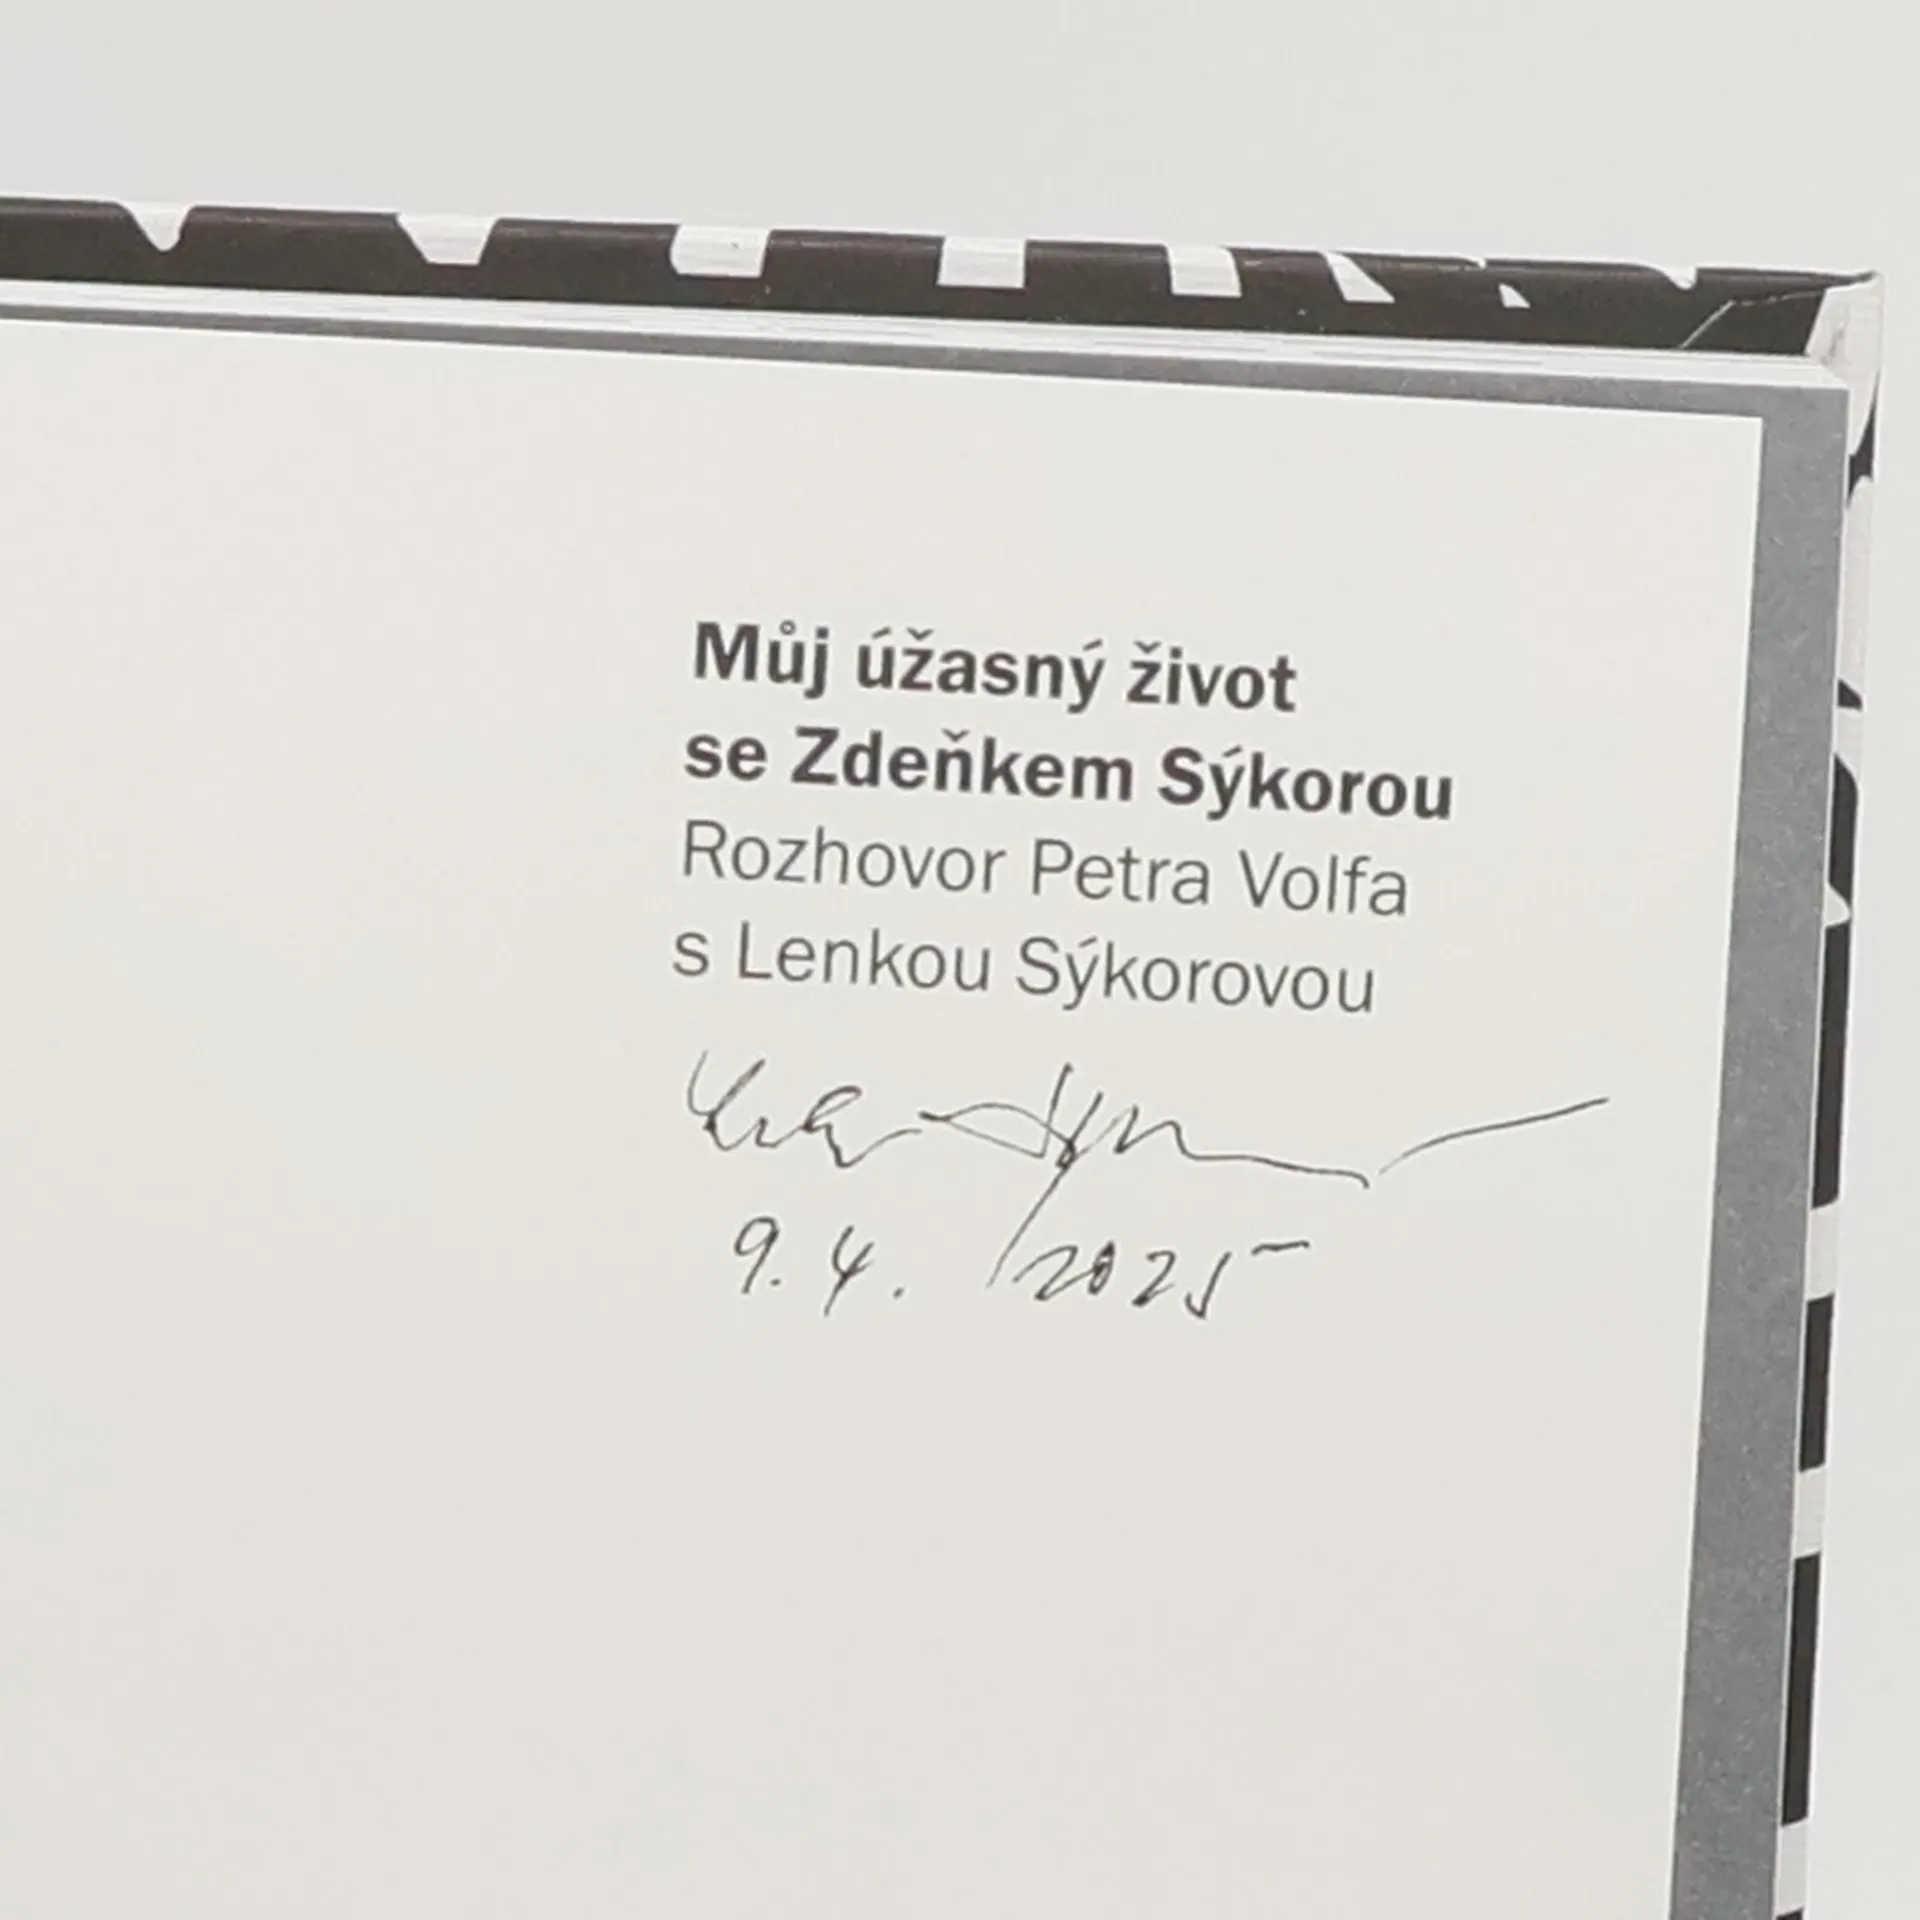 Můj úžasný život
se Zdeňkem Sýkorou
Rozhovor Petra Volfa
s Lenkou Sýkorovou
9. 4. 2025